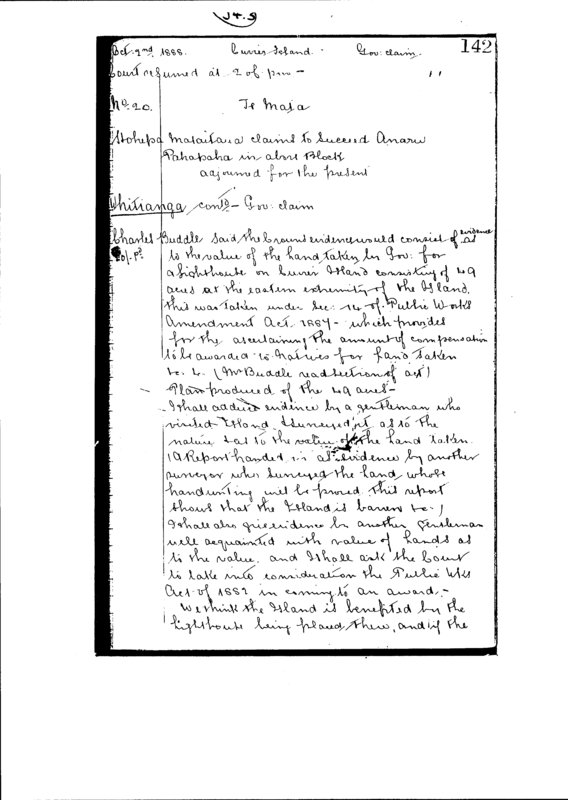 142
Oct. 2nd 1888. Cuvier Island. Gov: claim.
Court resumed at 2 o/. pm -
No. 20. Te Mata
Hohepa Mataitaua claims to succeed Anaru
Pahapaha in above Block
adjourned for the present
Whitianga cont'd - Gov: claim
Charles Buddle said the Crown evidence would consist of evidence as
to the value of the land taken by Gov: for
a lighthouse on Cuvier Island consisting of 49
acres at the eastern extremity of the Island.
this was taken under Sec: 14 of Public Works
Amendment Act. 1887 - which provides
for the ascertaining the amount of compensation
to be awarded to Natives for land taken
&c. &c. (Mr Buddle read section of act)
Plan produced of the 49 acres -
I shall adduce evidence by a gentleman who
visited Island & surveyed it as to the
nature & as to the value of the land taken.
(A Report handed in as evidence by another
surveyor who surveyed the land, whose
handwriting will be proved this report
shows that the Island is barren &c.)
I shall also give evidence by another gentleman
well acquainted with value of lands as
to the value, and I shall ask the Court
to take into consideration the Public Wks
Act of 1882 in coming to an award. -
We think the Island is benefited by the
lighthouse being placed there, and if the